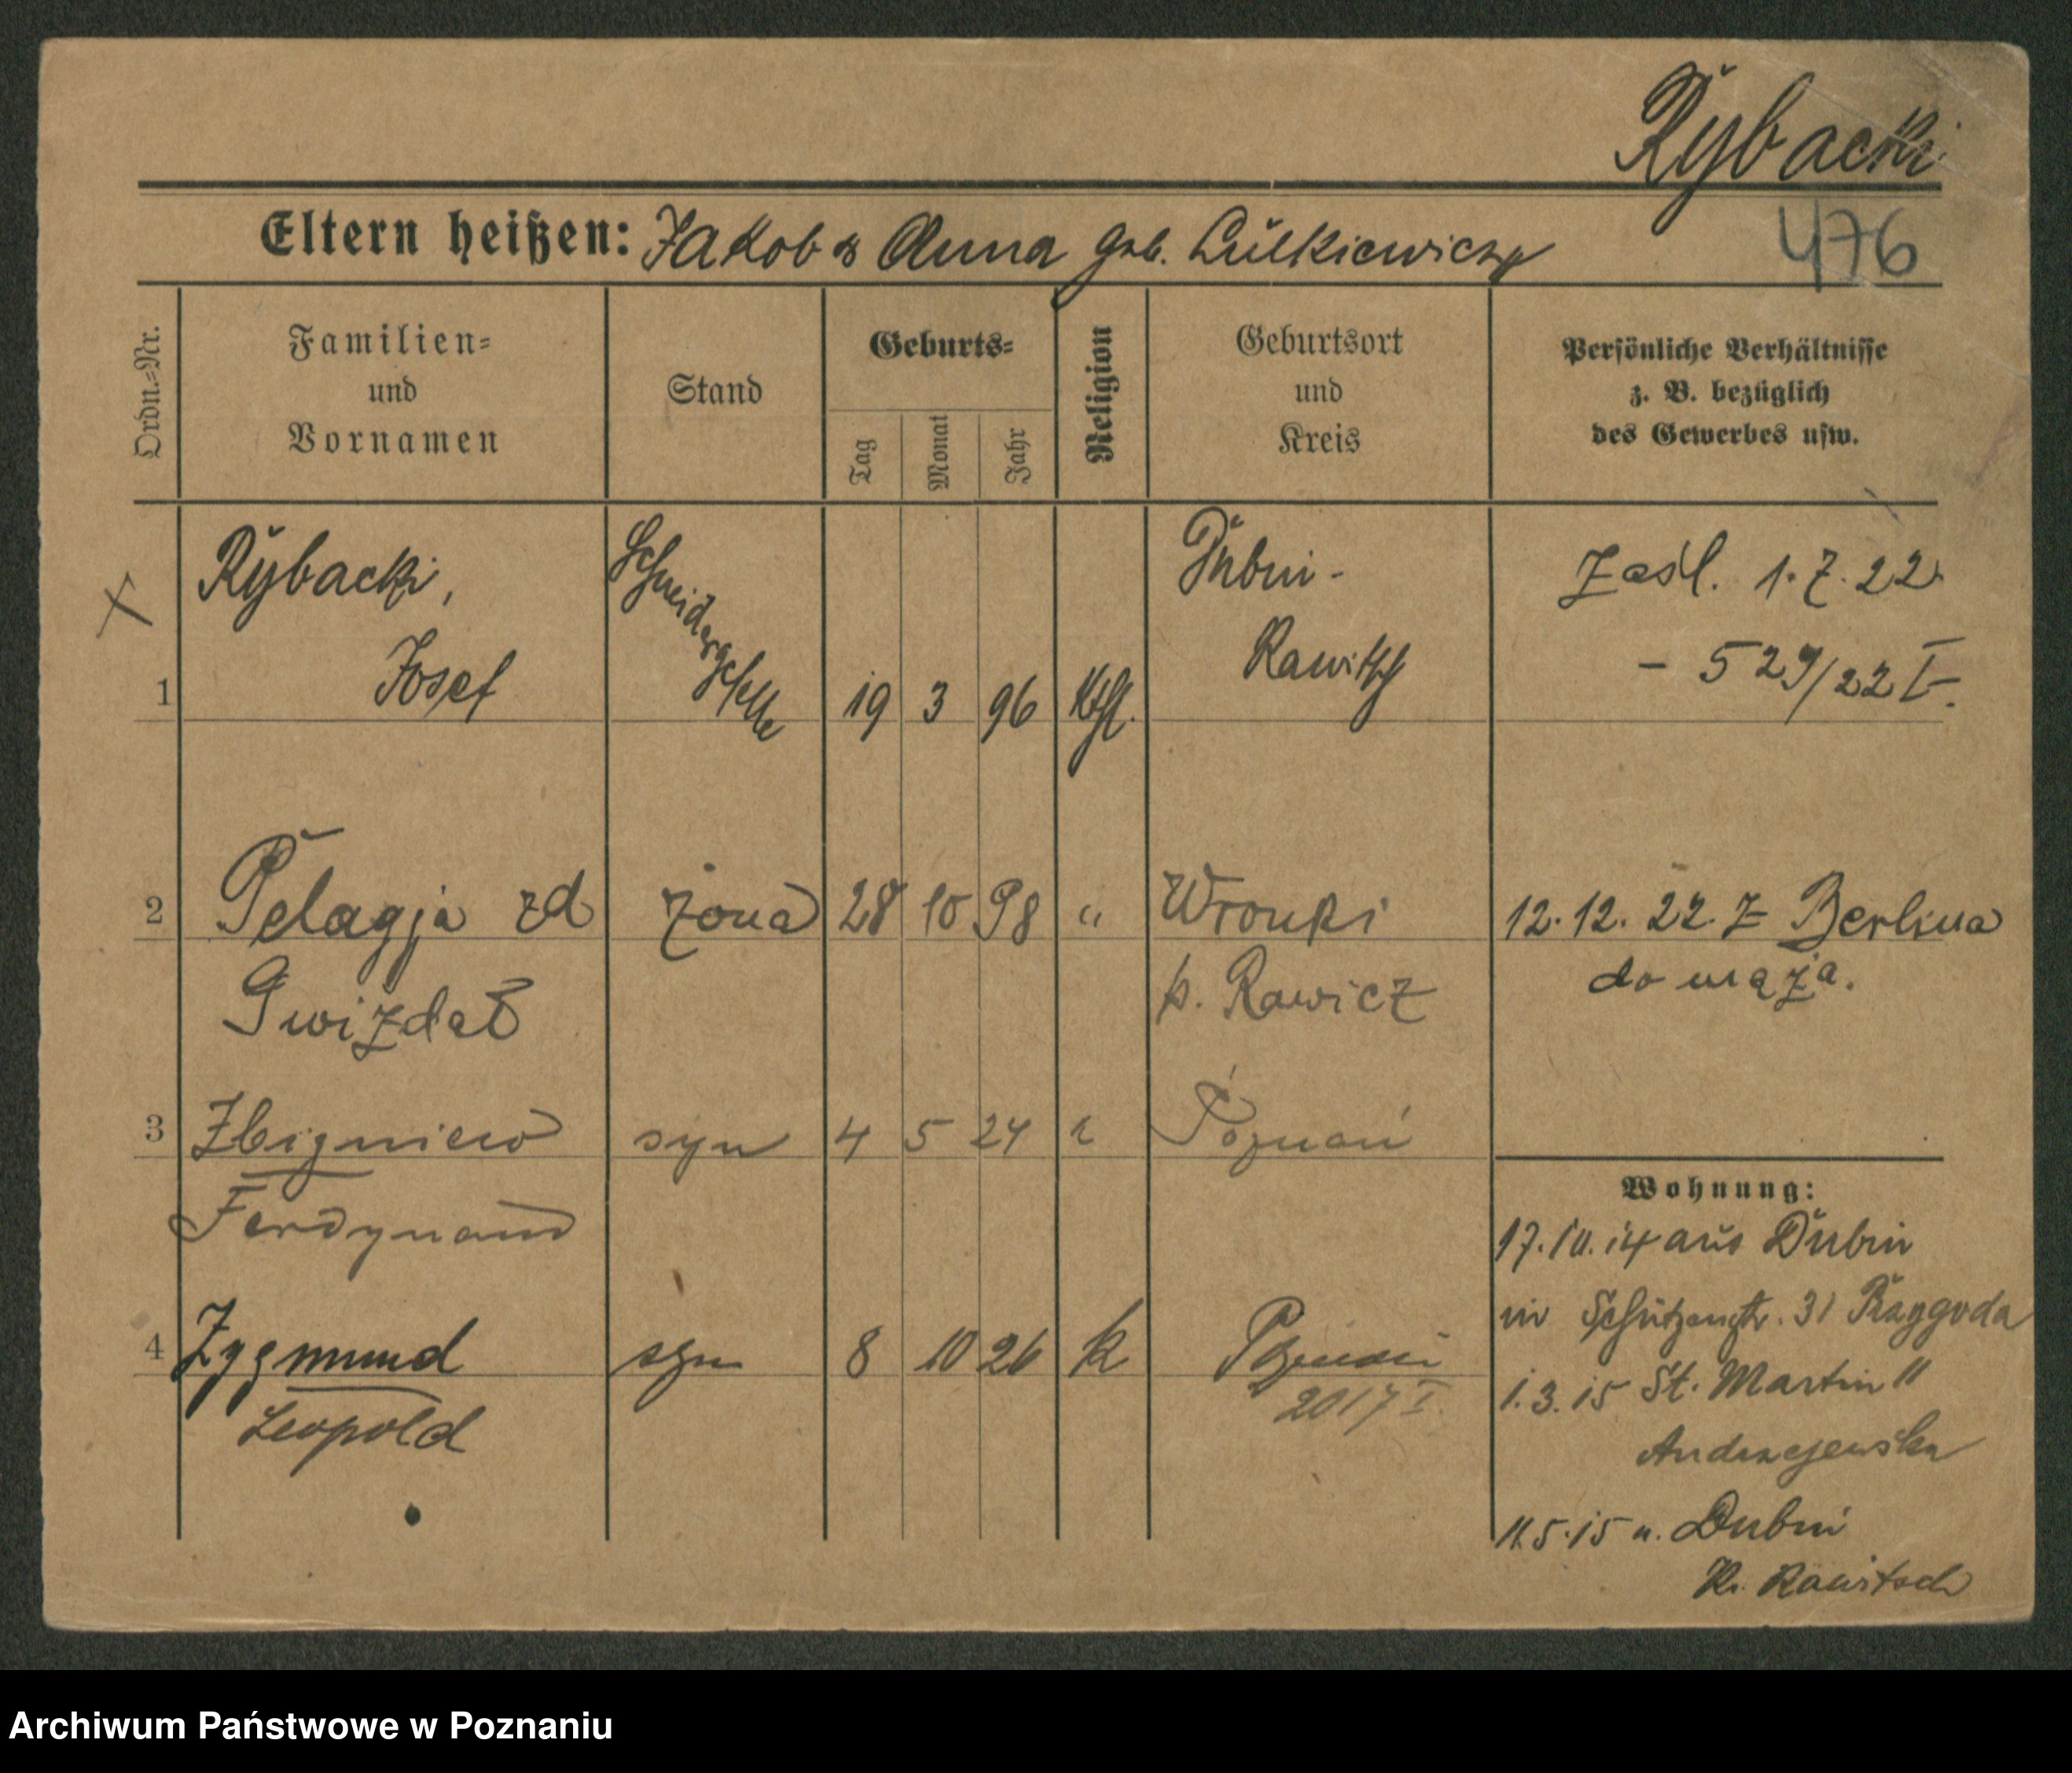 Rybacki
476
Eltern heißen: Jakob & Anna geb. Lulkiewicz
Ordn.-Nr.
Familien-
und
Vornamen
Stand
Geburts-
Tag
Monat
Jahr
Religion
Geburtsort
und
Kreis
Persönliche Verhältnisse
z. B. bezüglich
des Gewerbes usw.
1
Rybacki,
Josef
Schneidergeselle
19 3 96 kthl.
Dubin-
Rawitsch
Zaśl. 1.7.22
- 529/22 I.
2
Pelagja zd
Gwizdat
żona
28 10 98 "
Wronki
p. Rawicz
12.12.22. z Berlina
do męża.
3
Zbigniew
Ferdynand
syn
4 5 24
Poznań
4
Zygmund
Leopold
syn
8 10 26 k
Poznań
2017 I.
Wohnung:
17.10.14 aus Dubin
in Schützenstr. 31 Przygoda
1.3.15 St. Martin 11
Andrzejewska
11.5.15 n. Dubin
Kr. Rawitsch
Archiwum Państwowe w Poznaniu